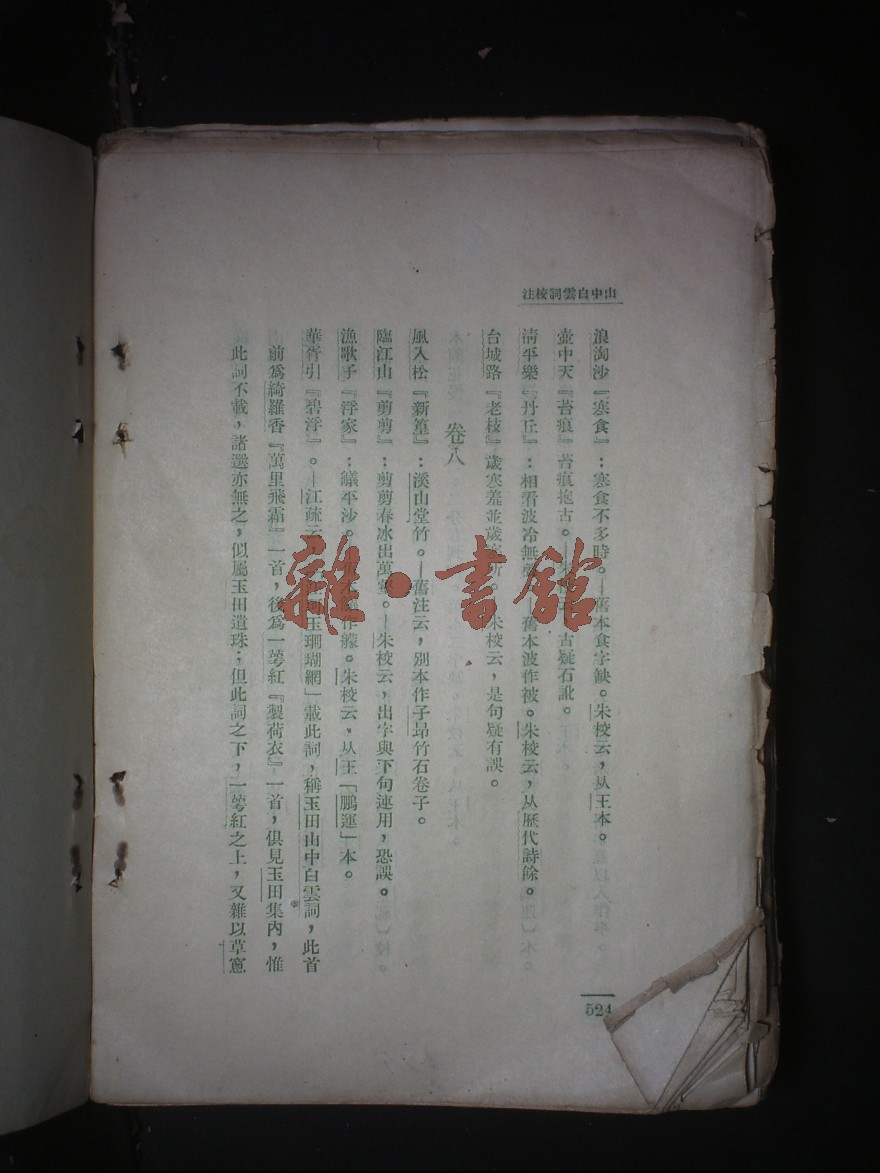 山中白雲詞校注
浪淘沙『寒食』：寒食不多時。—舊本食字缺。朱校云，从王本。
壺中天『苔痕』苔痕抱古。—朱校云，古疑石訛。
清平樂『丹丘』：相看波冷無 —舊本波作被。朱校云，从歷代詩餘。
台城路『老枝』歲寒羞並歲寒 朱校云，是句疑有誤。
卷八
風入松『新篁』：溪山堂竹。—舊注云，別本作子昂竹石卷子。
臨江山『剪剪』：剪剪春冰出萬壑。—朱校云，出字與下句連用，恐誤。
漁歌子『浮家』：艤平沙。 作艨。朱校云，从王「鵬運」本。
華胥引『碧浮』。—江疏云， 珂玉珊瑚網」載此詞，稱玉田山中白雲詞，此首
前爲綺羅香『萬里飛霜』一首，後爲一萼紅『製荷衣』一首，俱見玉田集內，惟
此詞不載，諸選亦無之，似屬玉田遺珠；但此詞之下，一萼紅之上，又雜以草窗
524
雜·書館